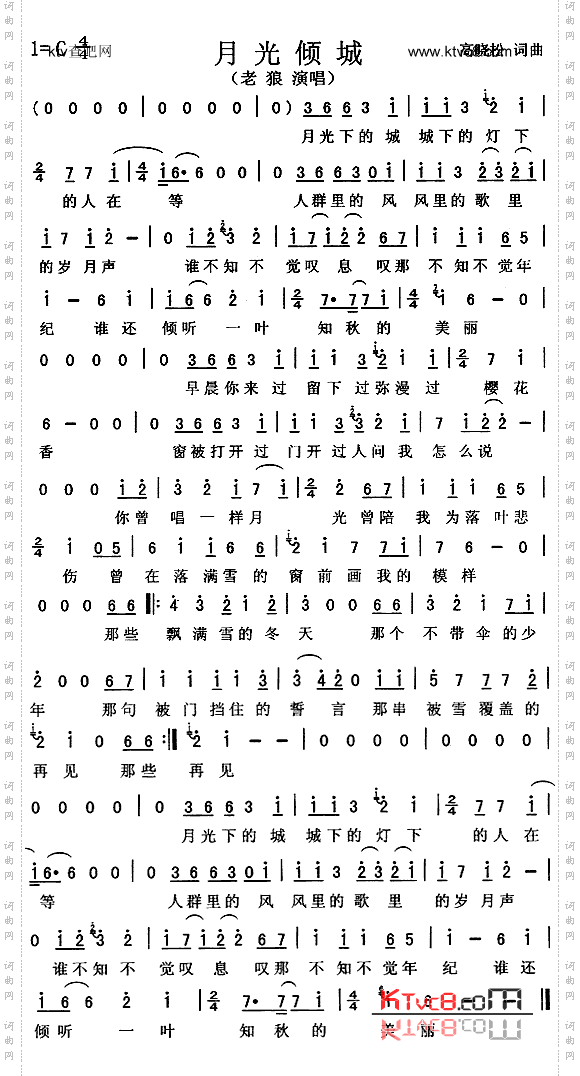 1=C 4/4 ktv查吧网 月光倾城 www.ktvc8.com 高晓松 词曲
（老 狼 演唱）
(0 0 0 0 | 0 0 0 0 | 0 0) 3 6 6 3 i | i i 3 2 i |
月光下的 城 城下的 灯 下
2/4 7 7 i | 4/4 i 6· 6 0 0 | 0 3 6 6 3 0 i | i i 3 2 3 2 i |
的 人 在 等 人群里的 风 风里的 歌 里
i 7 i 2 - | 0 i 2 3 2 | i 7 i 2 2 6 7 | i i i 6 5 |
的 岁 月 声 谁不知 不 觉叹 息 叹那 不 知 不 觉年
i - 6 i | i 6 6 2 i | 2/4 7· 7 7 i | 4/4 i 6 - 0 |
纪 谁 还 倾听 一 叶 知 秋 的 美 丽
0 0 0 0 | 0 3 6 6 3 i | i i 3 2 i 2 | 2/4 7 i |
早晨你来 过 留下 过 弥漫 过 樱 花
6 - 0 0 | 0 3 6 6 3 i | i i 3 3 2 i | 7 i 2 2 - |
香 窗被打开 过 门开 过 人问 我 怎 么 说
0 0 0 i 2 | 3 2 i 7 i | i i 2 i 7 | i i i 6 5 |
你曾 唱 一 样 月 光 曾 陪 我 为 落 叶悲
2/4 i 0 5 | 6 i i 6 i | 2 i 7 7 i | 7 6 - 0 |
伤 曾 在 落 满 雪 的 窗 前 画 我的 模 样
0 0 0 6 6 |: 4 3 2 i | 3 0 0 2 | 3 2 2 7 i |
那些 飘 满 雪 的 冬 天 那个 不 带 伞 的少
2 0 0 6 7 | i i i i 3 | 3 4 2 0 i i | 5 7 7 7 2 |
年 那句 被 门 挡 住 的 誓 言 那串 被 雪 覆 盖 的
2 i 0 6 6 :| 2 i - - | 0 0 0 0 | 0 0 0 0 |
再 见 那些 再 见
0 0 0 0 | 0 3 6 6 3 i | i i 3 2 i | 2/4 7 7 i |
月光下的 城 城下的 灯 下 的 人 在
i 6· 6 0 0 | 0 3 6 6 3 0 i | i i 3 2 3 2 i | i 7 i 2 - |
等 人群里的 风 风里的 歌 里 的 岁 月 声
0 i 2 3 2 | i 7 i 2 2 6 7 | i i i 6 5 | i - 6 i |
谁不知 不 觉叹 息 叹那 不 知 不 觉年 纪 谁 还
i 6 6 2 i | 2/4 7· 7 7 i | 4/4 i 6 - - ‖
倾听 一 叶 知 秋 的 美 丽
KTvc8.com
词曲网